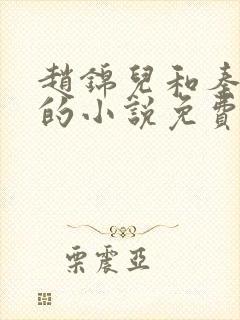 趙錦兒和秦
的小說免費
栗震亞